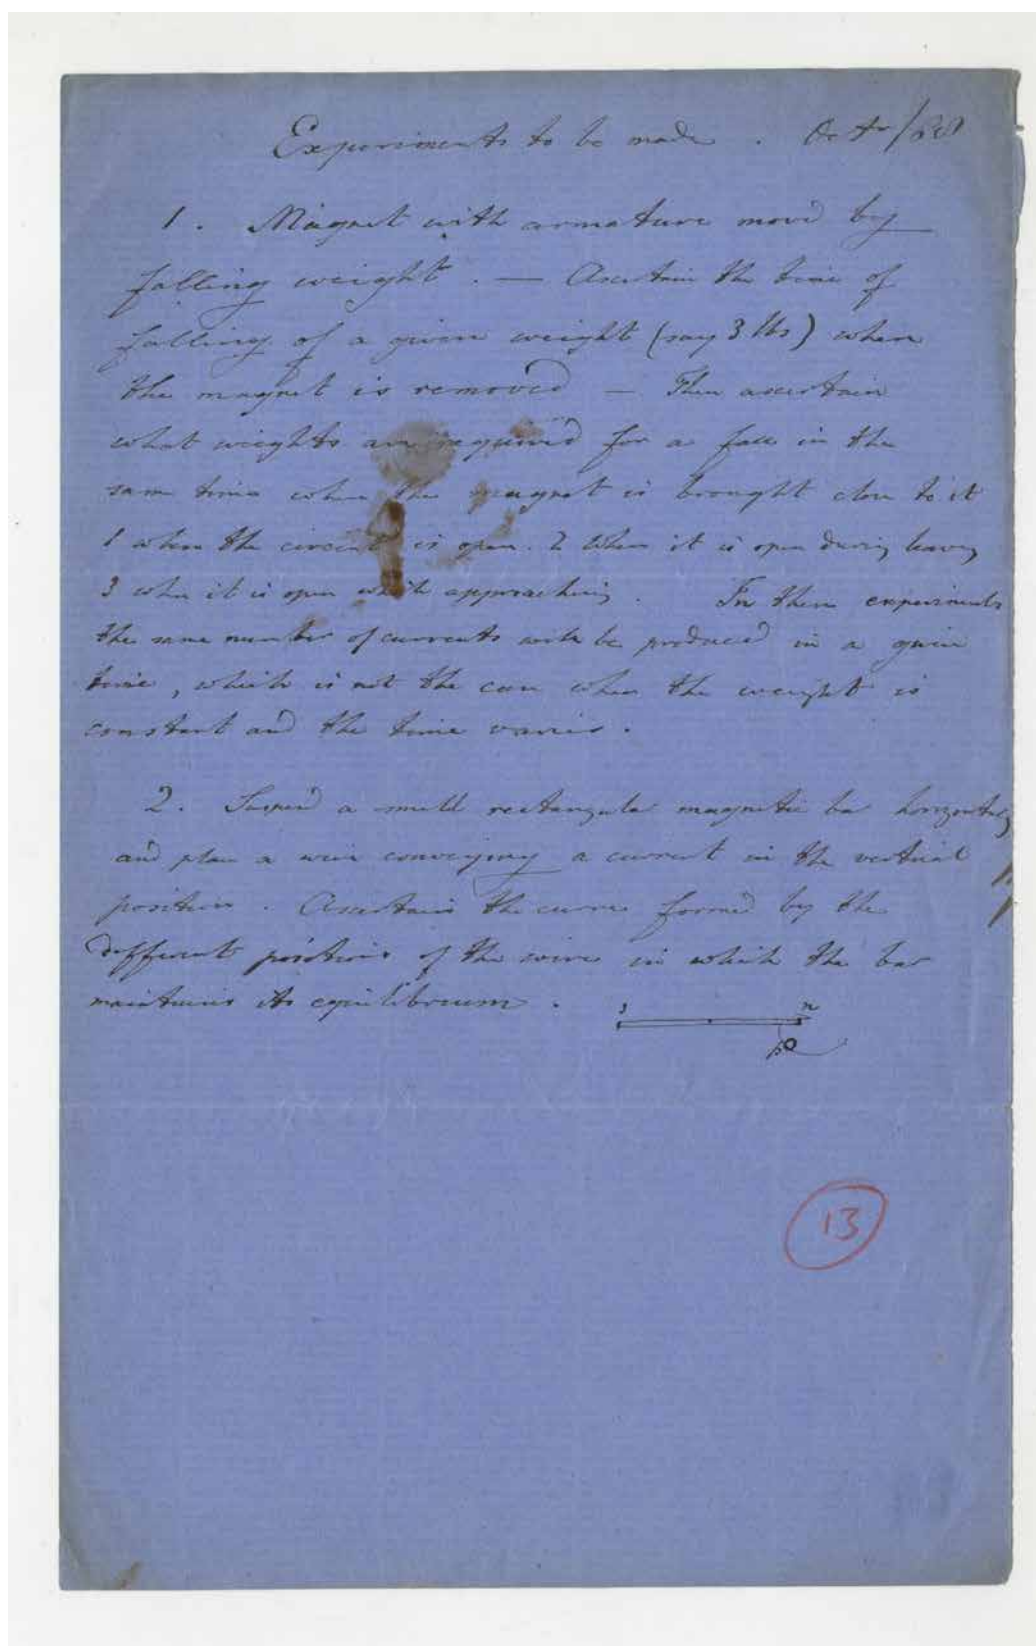 Experiments to be made . Octr/
1 . Magnet with armature mov'd by
falling weight . — Ascertain the time of
falling of a given weight (say 3 lbs) when
the magnet is removed — Then ascertain
what weights are required for a fall in the
same time when the magnet is brought close to it
1 when the circuit is open . 2 When it is open during leaving
3 when it is open while approaching . In these experiments
the same number of currents will be produced in a given
time , which is not the case when the weight is
constant and the time varies .
2 . Suspend a small rectangular magnetic bar horizontally
and place a wire conveying a current in the vertical
position . Ascertain the curves formed by the
different positions of the wire in which the bar
maintains its equilibrium .
s n
13